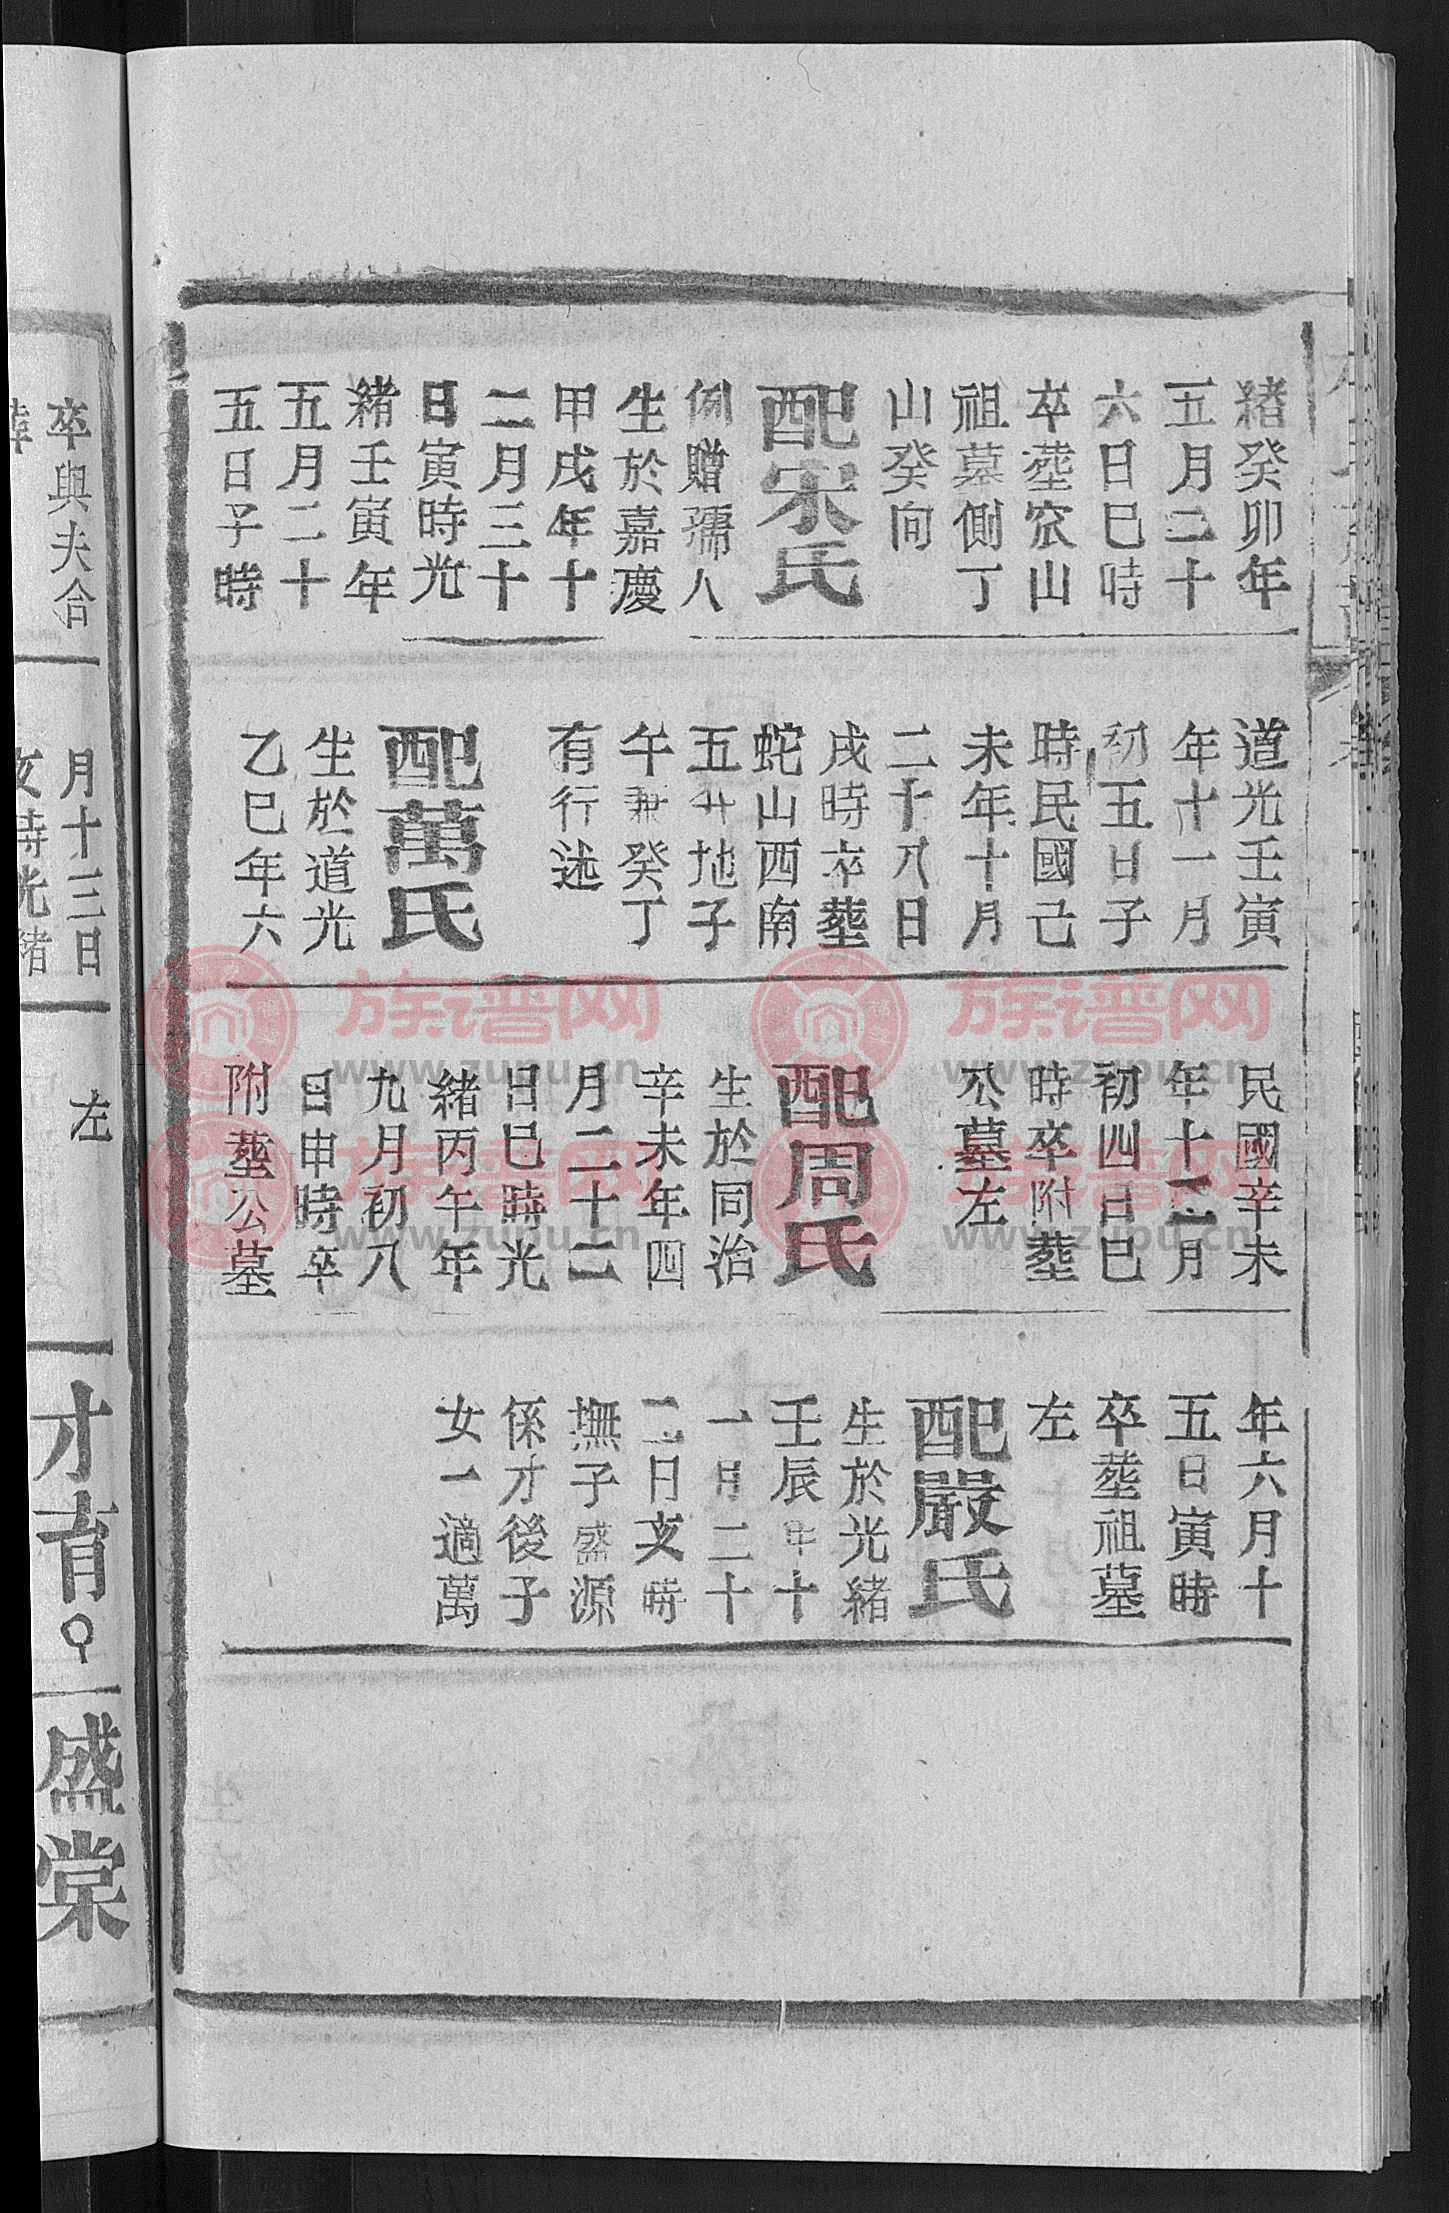 緒癸卯年
五月二十
六日巳時
卒塟农山
祖墓側丁
山癸向
配宋氏
例贈孺人
生於嘉慶
甲戌年十
二月三十
日寅時光
緒壬寅年
五月二十
五日子時
道光壬寅
年十一月
初五日子
時民國己
未年十月
二十八日
戌時卒塟
蛇山西南
五廾地子
午兼癸丁
有行述
配萬氏
生於道光
乙巳年六
民國辛未
年十二月
初四日巳
時卒附塟
公墓左
配周氏
生於同治
辛未年四
月二十二
日巳時光
緒丙午年
九月初八
日申時卒
附塟公墓
年六月十
五日寅時
卒塟祖墓
左
配嚴氏
生於光緒
壬辰年十
一月二十
二日亥時
撫子盛源
係才後子
女一適萬
卒與夫合
月十三日
左
才育
盛棠
族谱网
www.zupu.cn
族谱网
www.zupu.cn
族谱网
www.zupu.cn
族谱网
www.zupu.cn